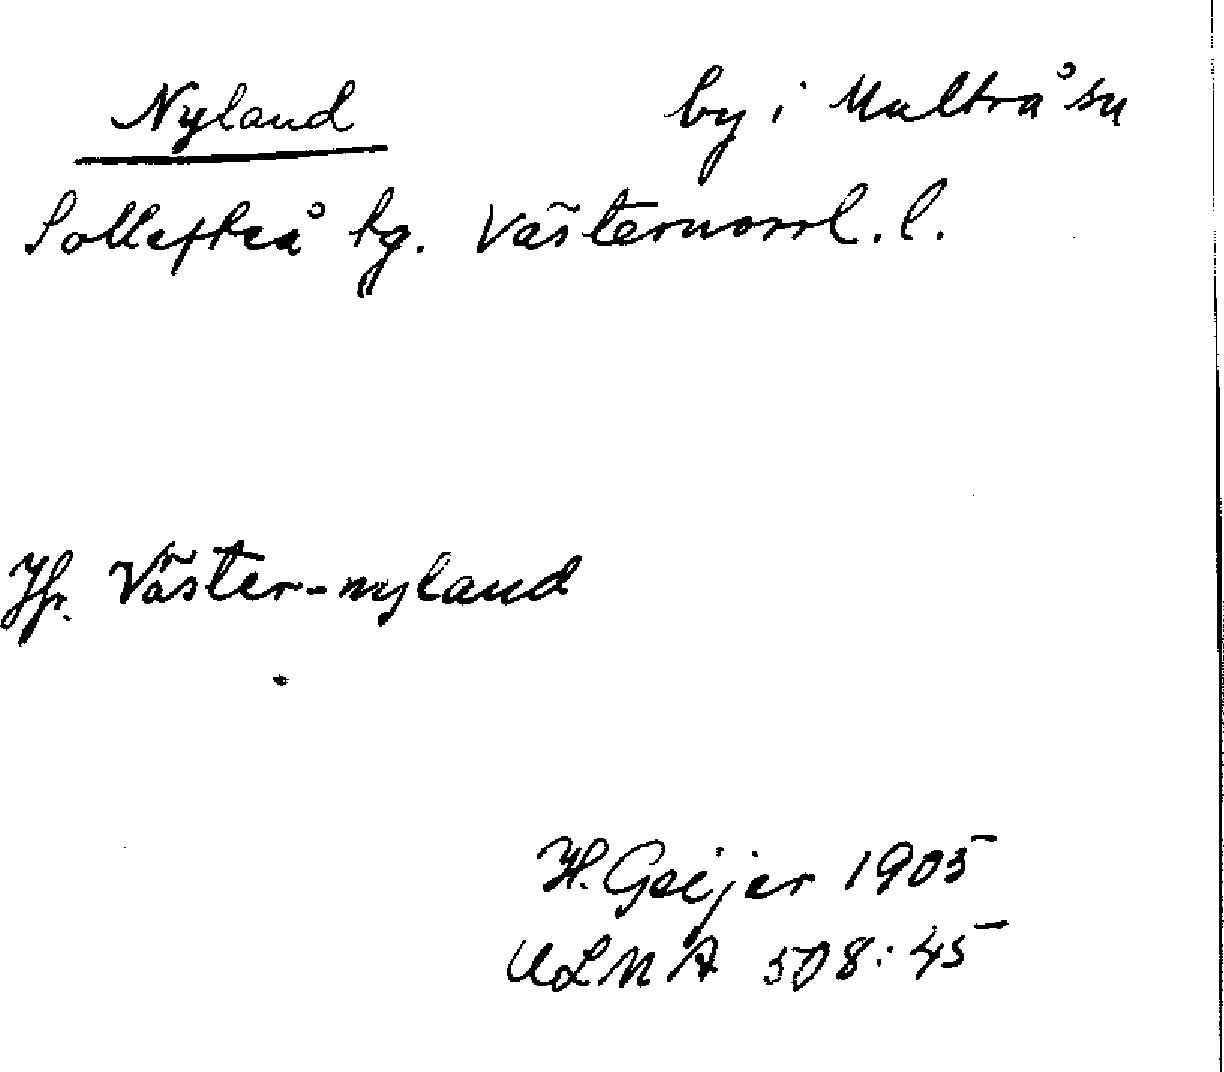 Nyland by i Multrå sn
Sollefteå tg. Västernorrl. l.
Jfr. Väster-nyland
H. Geijer 1905
ULMA 508:45